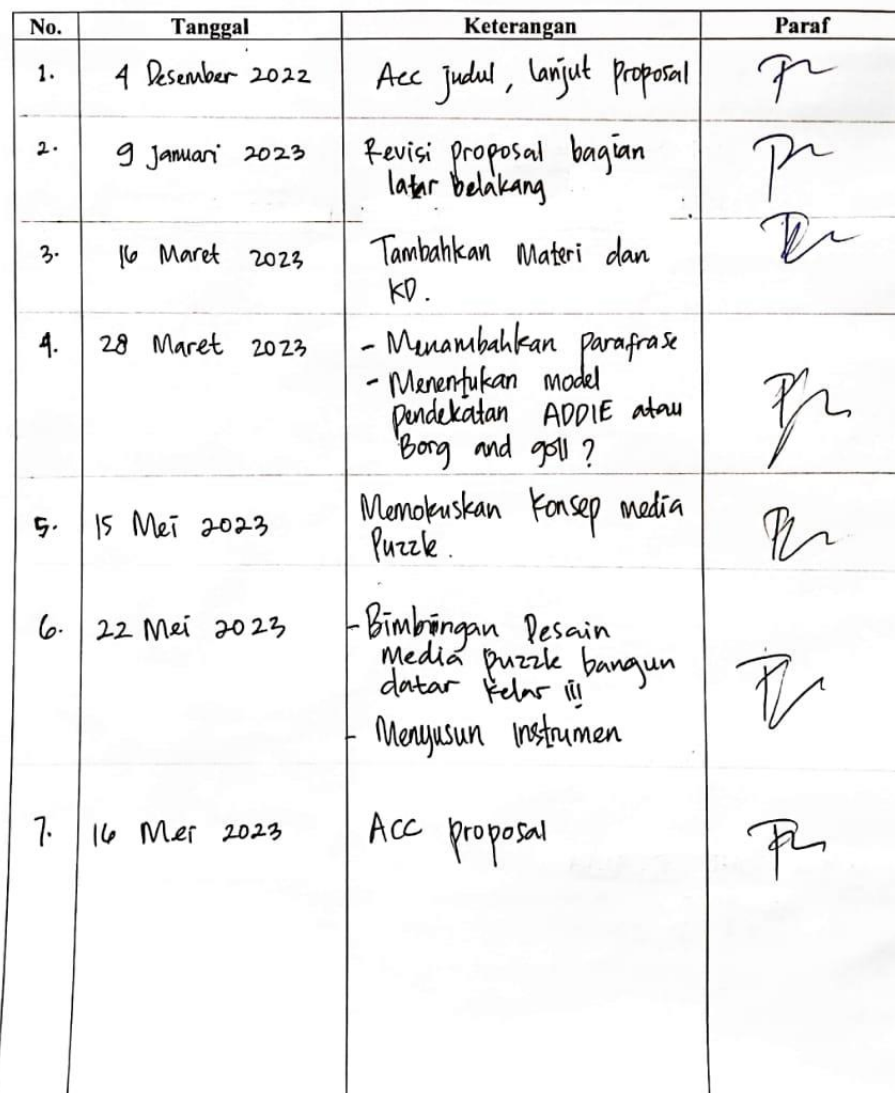 No. Tanggal Keterangan Paraf
1. 4 Desember 2022 Acc judul, lanjut proposal
2. 9 Januari 2023 Revisi proposal bagian
latar belakang
3. 16 Maret 2023 Tambahkan Materi dan
KD.
4. 28 Maret 2023 - Menambahkan parafrase
- Menentukan model
pendekatan ADDIE atau
Borg and goll ?
5. 15 Mei 2023 Memokuskan konsep media
Puzzle.
6. 22 Mei 2023 - Bimbingan Desain
Media puzzle bangun
datar kelas iii
- Menyusun instrumen
7. 16 Mei 2023 ACC proposal